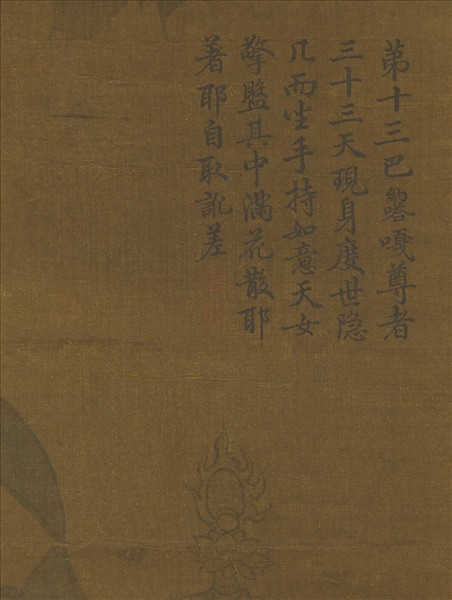 第十三巴嘎尊者
三十三天現身度世隐
几而坐手持如意天女
擎盤其中滿花散耶
著耶自取訛差